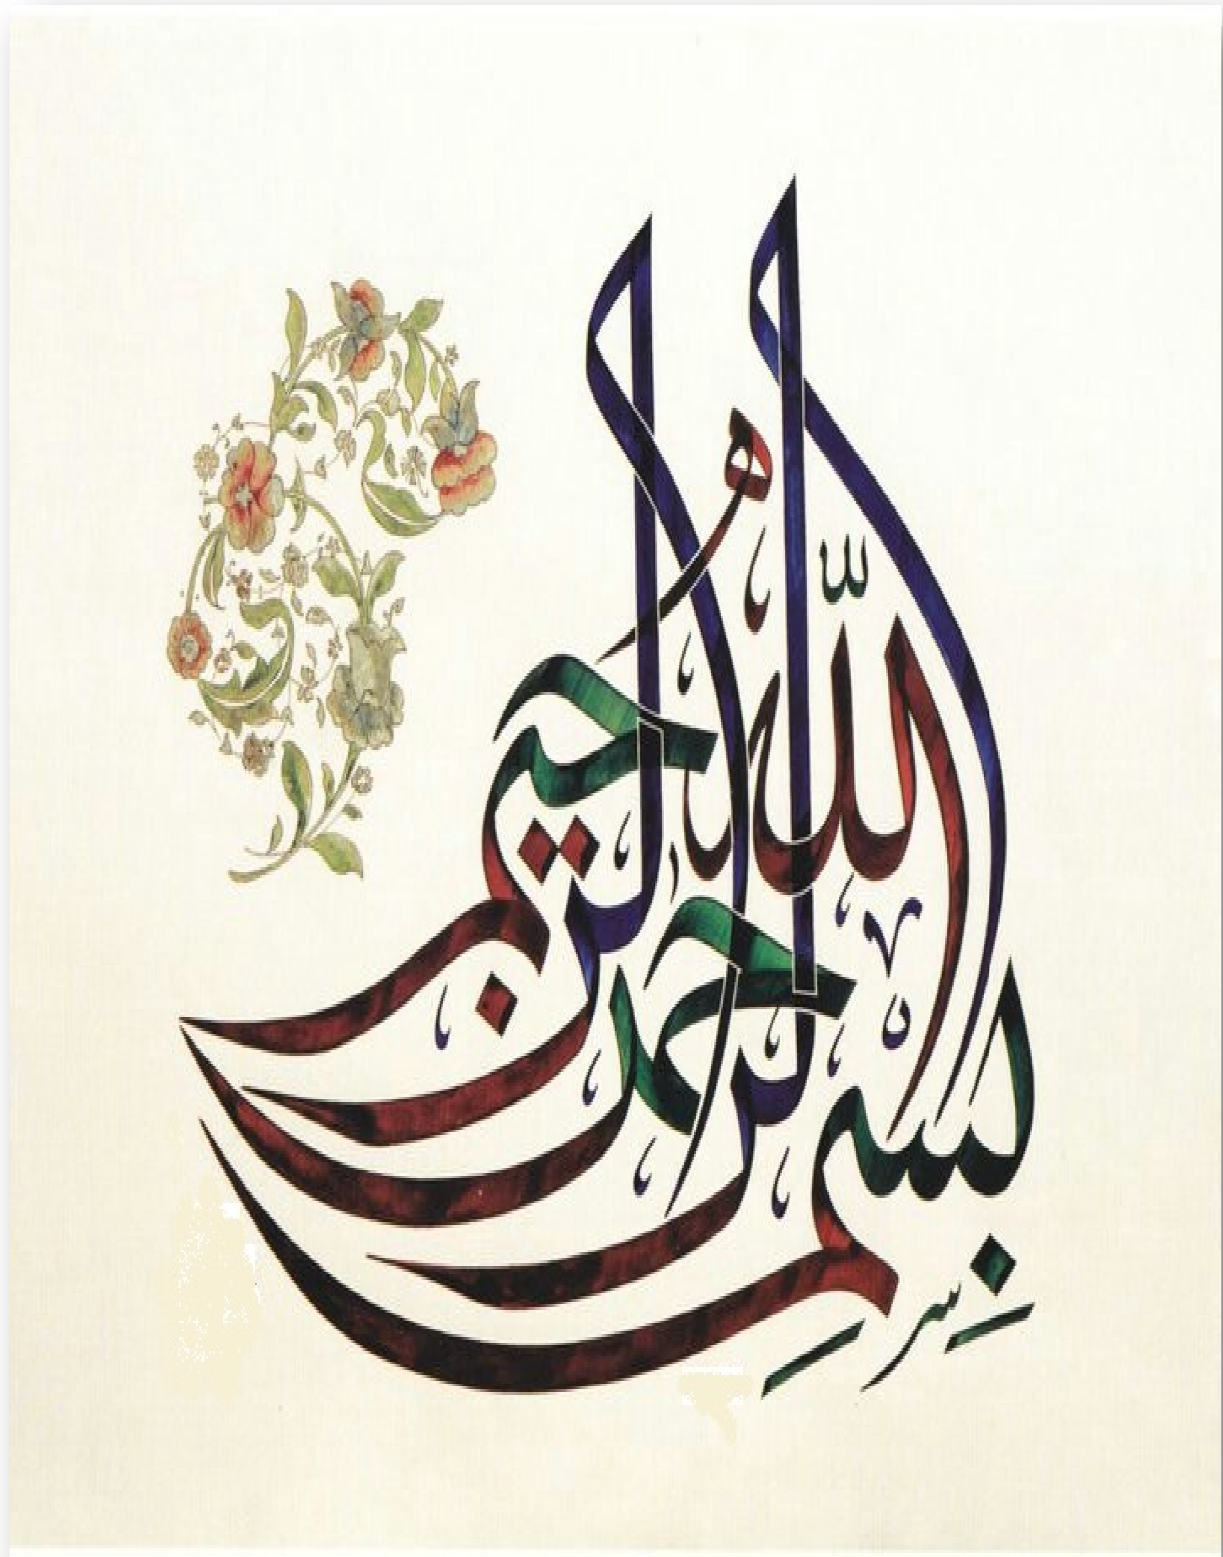 بِسْمِ اللّٰه الرحمن الرحيم